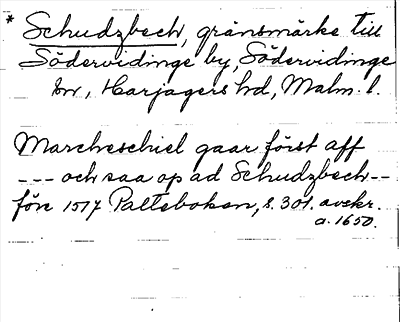 * Schudzbech, gränsmärke till
Södervidinge by, Södervidinge
sn, Harjagers hd, Malm. l.
Marcheschiel gaar först aff
--- och saa op ad Schudzbech--
före 1517 Paltebokan, s. 301. avskr.
a. 1650.